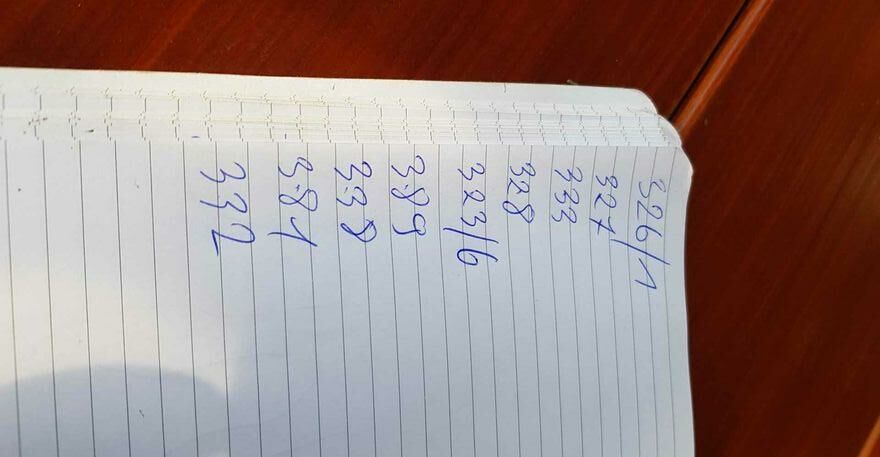 326/1
327
333
328
323/6
389
338
381
332